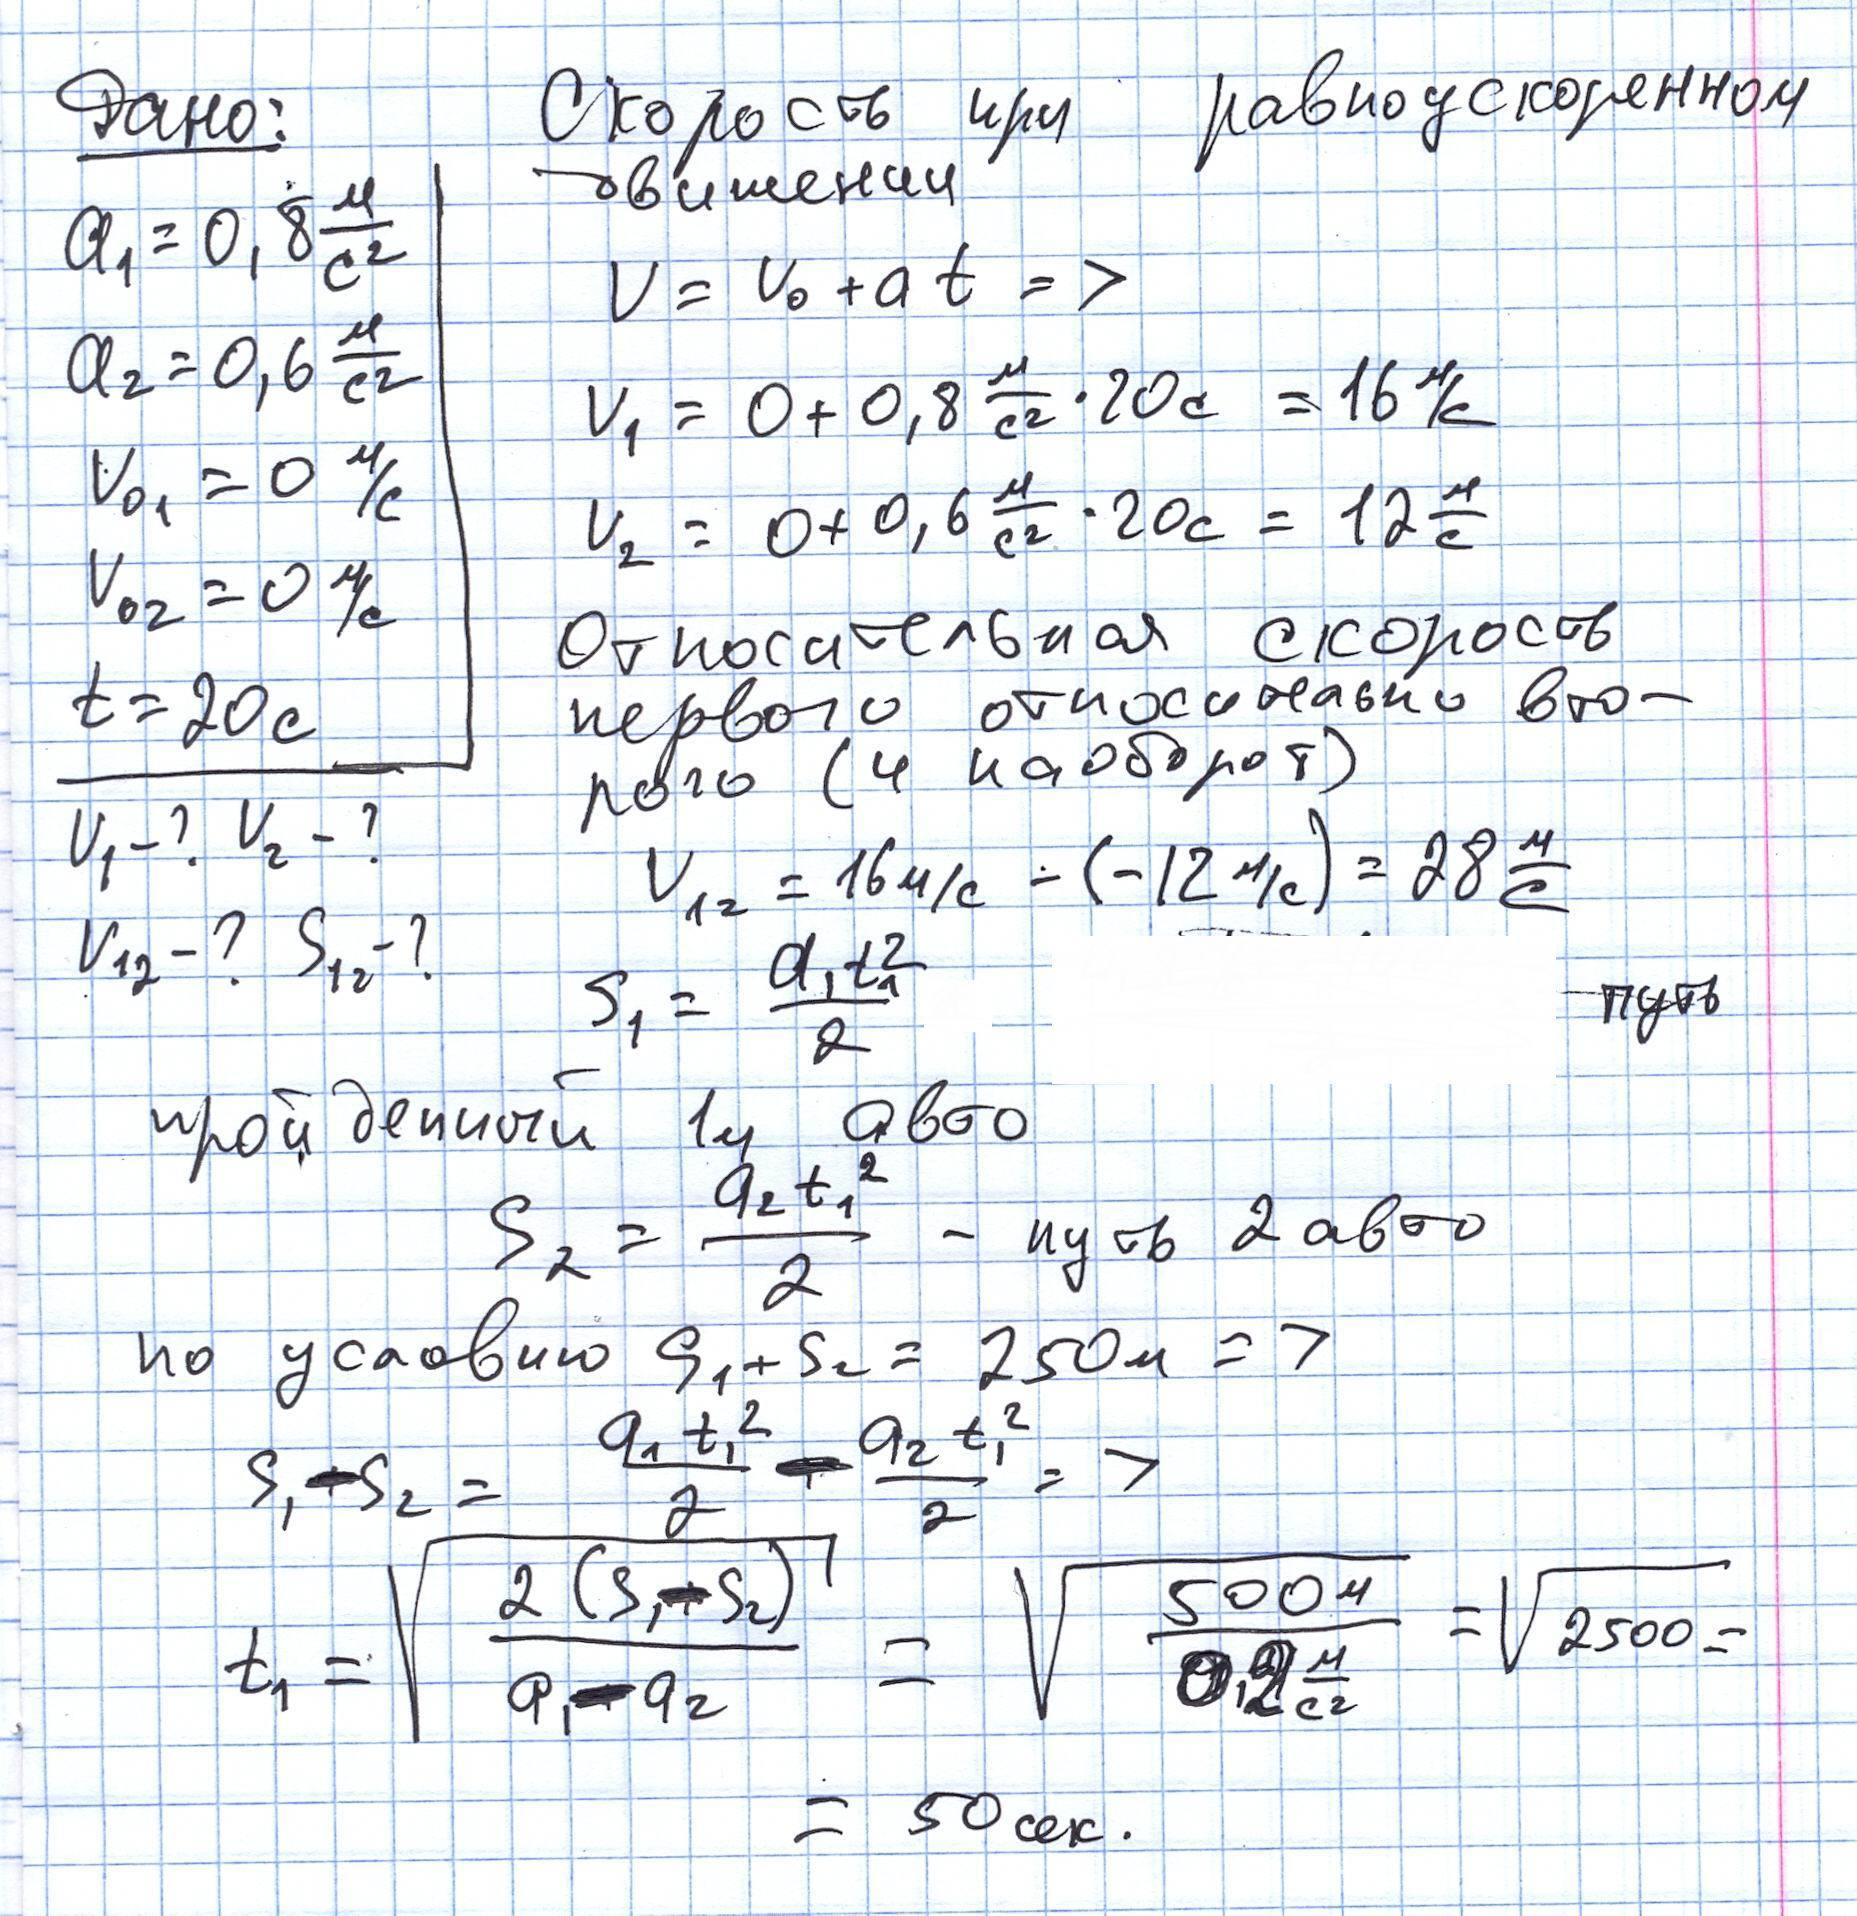 Дано:
a₁ = 0,8 м/с²
a₂ = 0,6 м/с²
V₀₁ = 0 м/с
V₀₂ = 0 м/с
t = 20с
V₁ - ? V₂ - ?
V₁₂ - ? S₁₂ - ?
Скорость при равноускоренном
движении
V = V₀ + a t = >
V₁ = 0 + 0,8 м/с² · 20с = 16 м/с
V₂ = 0 + 0,6 м/с² · 20с = 12 м/с
Относительная скорость
первого относительно вто-
рого (и наоборот)
V₁₂ = 16 м/с - (-12 м/с) = 28 м/с
S₁ = a₁t₁²/2 - путь
пройденный 1м авто
S₂ = a₂t₁²/2 - путь 2 авто
по условию S₁ + S₂ = 250м = >
S₁ - S₂ = a₁t₁²/2 - a₂t₁²/2 = >
t₁ = √(2(S₁ - S₂)/(a₁ - a₂)) = √(500м/0,2 м/с²) = √2500 =
= 50 сек.